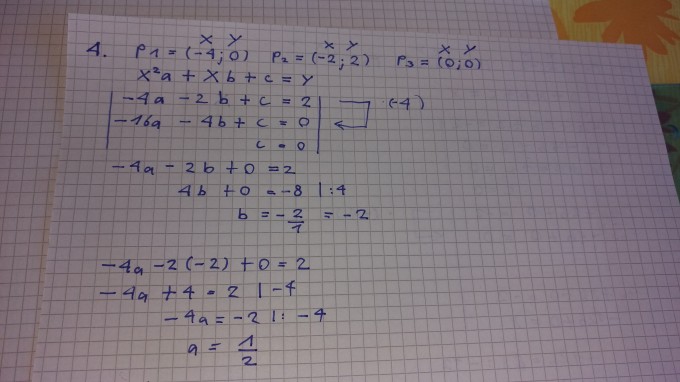 4. P1 = (-4; 0) P₂ = (-2; 2) P₃ = (0; 0)
X Y X Y X Y
x²a + xb + c = y
-4a - 2b + c = 2 (-4)
-16a - 4b + c = 0
c = 0
-4a - 2b + 0 = 2
4b + 0 = -8 | :4
b = -2/1 = -2
-4a -2(-2) + 0 = 2
-4a + 4 = 2 | -4
-4a = -2 | : -4
a = 1/2